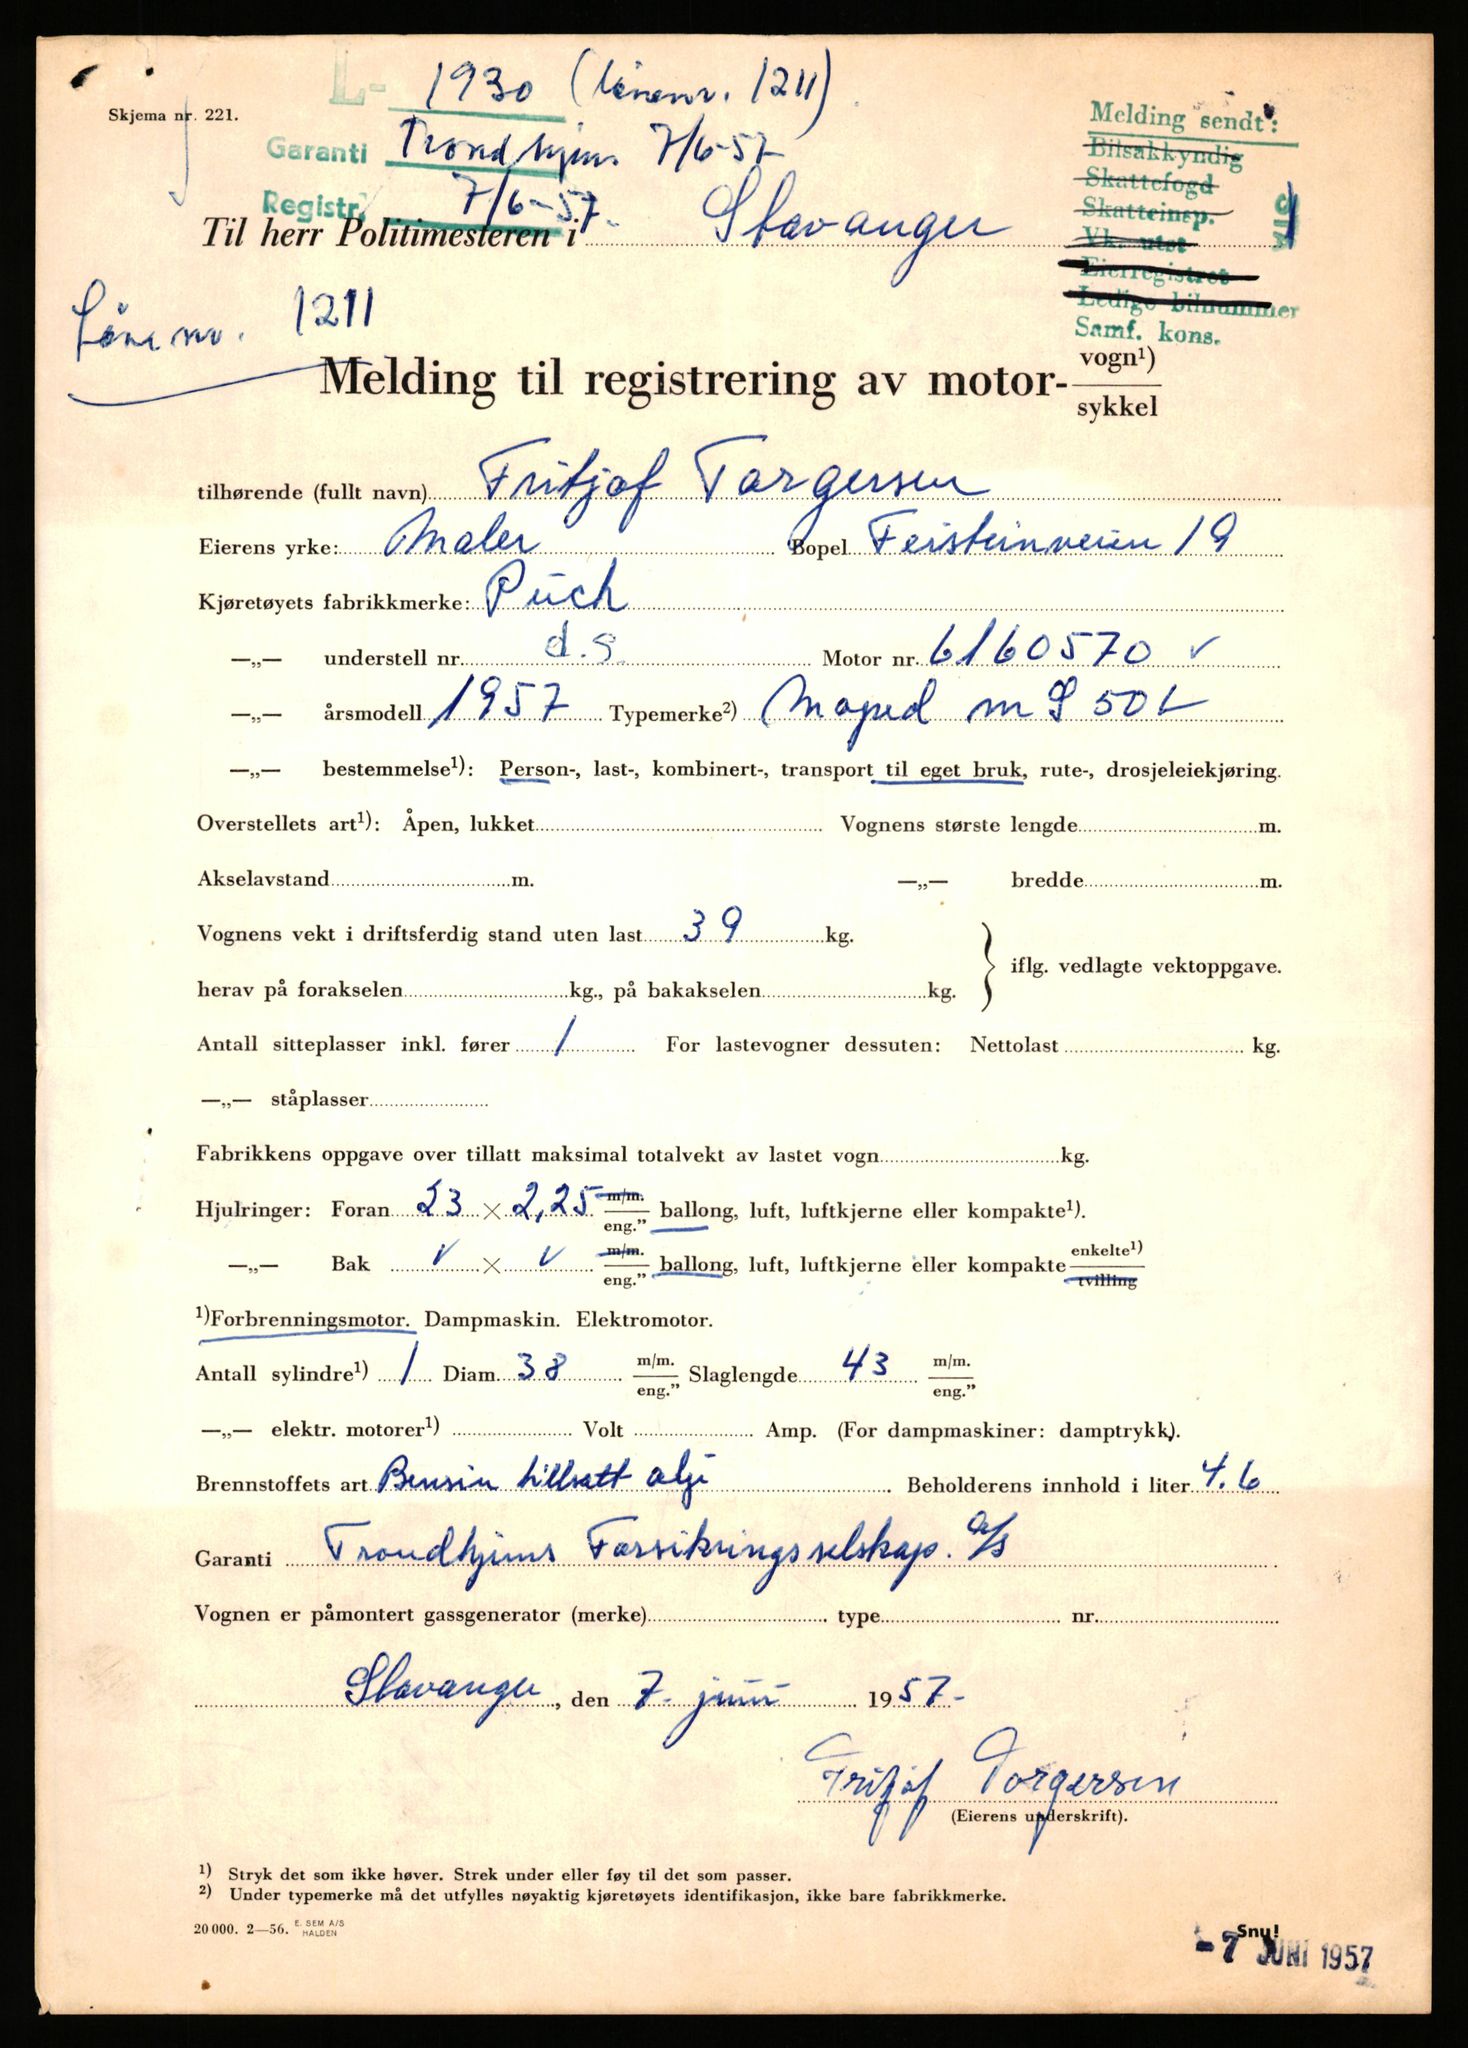 L- 1930 (lånenr. 1211)
Skjema nr. 221.
Garanti Trondhjems 7/6-57
Registr. 7/6-57.
Melding sendt:
Bilsakkyndig
Skattefogd
Skatteinsp.
Vk. utst
Eierregistret
Ledige bilnummer
Samf. kons.
Til herr Politimesteren i Stavanger
Lånenr. 1211
Melding til registrering av motor- vogn¹)
sykkel
tilhørende (fullt navn) Fritjof Torgersen
Eierens yrke: Maler Bopel Feisteinveien 19
Kjøretøyets fabrikkmerke: Puch
—„— understell nr. d.s. Motor nr. 6160570 v
—„— årsmodell 1957 Typemerke²) Moped MS 50 L
—„— bestemmelse¹): Person-, last-, kombinert-, transport til eget bruk, rute-, drosjeleiekjøring.
Overstellets art¹): Åpen, lukket Vognens største lengde m.
Akselavstand m. —„— bredde m.
Vognens vekt i driftsferdig stand uten last 39 kg.
iflg. vedlagte vektoppgave.
herav på forakselen kg., på bakakselen kg.
Antall sitteplasser inkl. fører 1 For lastevogner dessuten: Nettolast kg.
—„— ståplasser
Fabrikkens oppgave over tillatt maksimal totalvekt av lastet vogn kg.
Hjulringer: Foran 23 × 2,25 m/m. eng.” ballong, luft, luftkjerne eller kompakte¹).
—„— Bak v × v m/m. eng.” ballong, luft, luftkjerne eller kompakte enkelte¹) tvilling
¹)Forbrenningsmotor. Dampmaskin. Elektromotor.
Antall sylindre¹) 1 Diam. 38 m/m. eng.” Slaglengde 43 m/m. eng.”
—„— elektr. motorer¹) Volt Amp. (For dampmaskiner: damptrykk).
Brennstoffets art Bensin tillsatt olje Beholderens innhold i liter 4.6
Garanti Trondhjems Forsikringsselskap. A/S
Vognen er påmontert gassgenerator (merke) type nr.
Stavanger, den 7. juni 1957.-
Fritjof Torgersen
(Eierens underskrift).
¹) Stryk det som ikke høver. Strek under eller føy til det som passer.
²) Under typemerke må det utfylles nøyaktig kjøretøyets identifikasjon, ikke bare fabrikkmerke.
20 000. 2—56. E. SEM A/S HALDEN
Snu!
- 7 JUNI 1957